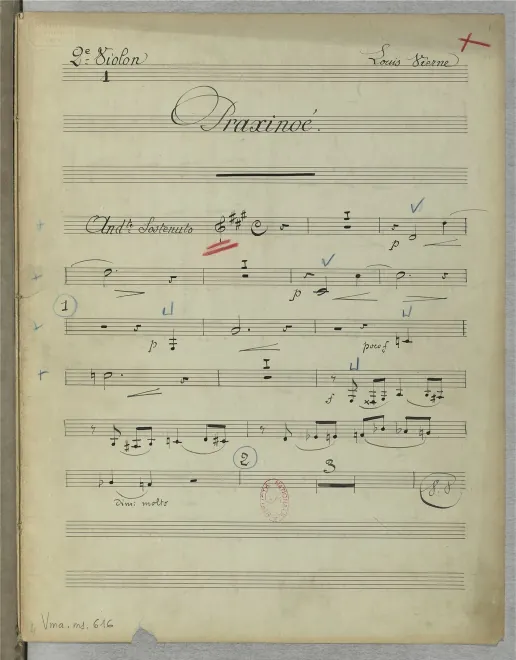 2e Violon Louis Vierne
1
Praxinoé.
Andte Sostenuto 1 p
1 p
1 p poco f
1 f
2 3 8.8
dim: molto
Vma. ms. 616